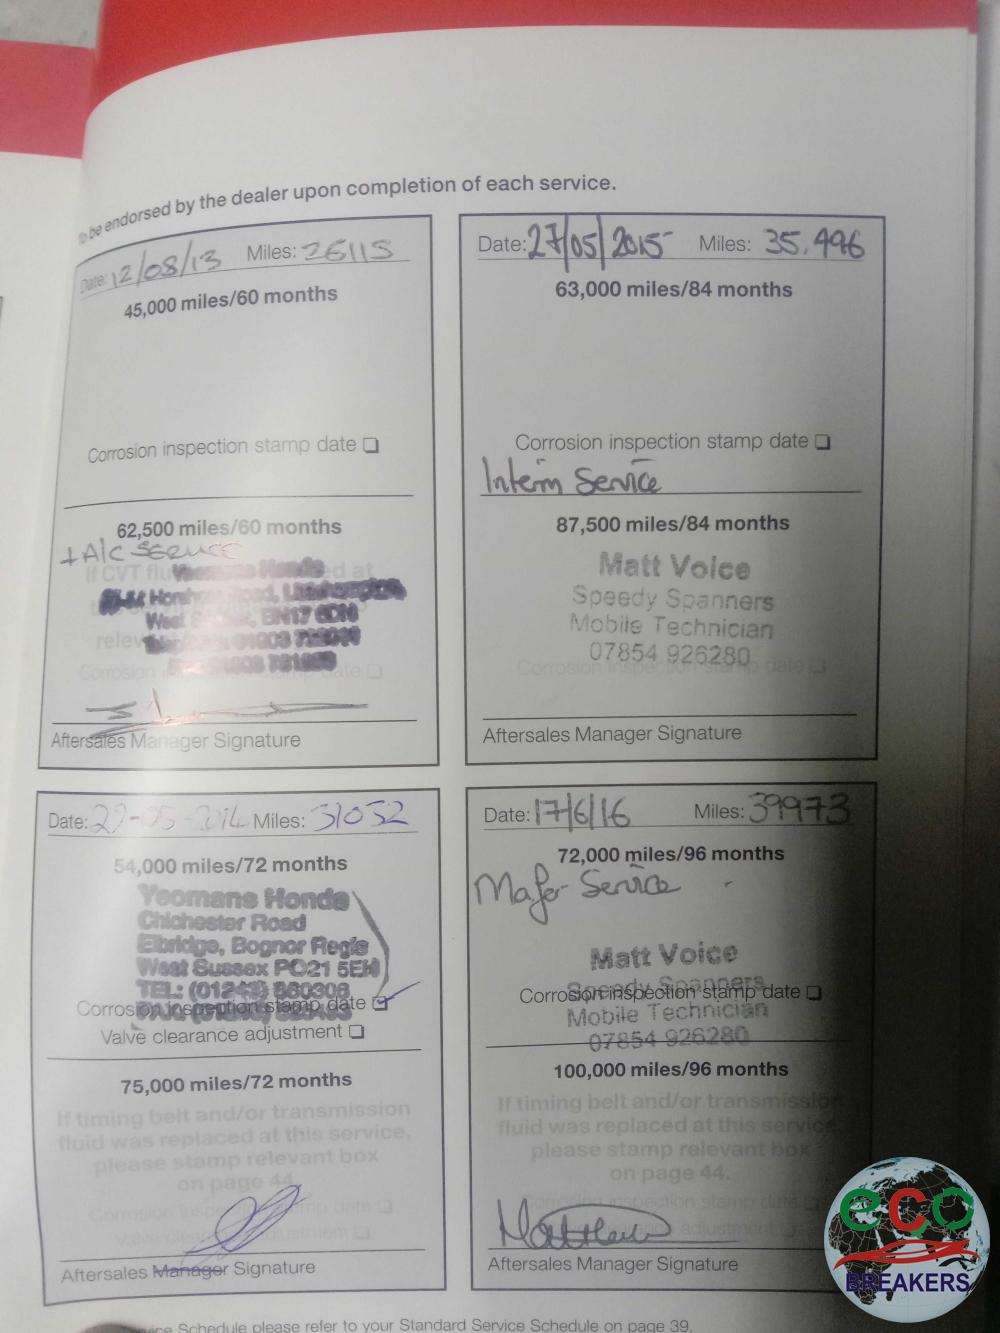 To be endorsed by the dealer upon completion of each service.
Date: 12/08/13 Miles: 26115
45,000 miles/60 months
Corrosion inspection stamp date
62,500 miles/60 months
+ A/C SERVICE
If CVT
Yeomans Honda
Horsham Road, Littlehampton
West Sussex, BN17 6DN
Corrosion
Aftersales Manager Signature
Date: 27/05/2015 Miles: 35.496
63,000 miles/84 months
Corrosion inspection stamp date
Interim Service
87,500 miles/84 months
Matt Voice
Speedy Spanners
Mobile Technician
07854 926280
Corrosion inspection stamp date
Aftersales Manager Signature
Date: 29-05-2014 Miles: 31032
54,000 miles/72 months
Yeomans Honda
Chichester Road
Elbridge, Bognor Regis
West Sussex PO21 5EH
TEL: (01243) 860306
Corrosion inspection stamp date
Valve clearance adjustment
75,000 miles/72 months
If timing belt and/or transmission
fluid was replaced at this service,
please stamp relevant box
on page 44.
Aftersales Manager Signature
Date: 17/6/16 Miles: 39973
72,000 miles/96 months
Major Service
Matt Voice
Speedy Spanners
Corrosion inspection stamp date
Mobile Technician
07854 926280
100,000 miles/96 months
If timing belt and/or transmission
fluid was replaced at this service,
please stamp relevant box
on page 44.
Corrosion inspection stamp date
adjustment
Aftersales Manager Signature
Service Schedule please refer to your Standard Service Schedule on page 39.
eco
BREAKERS